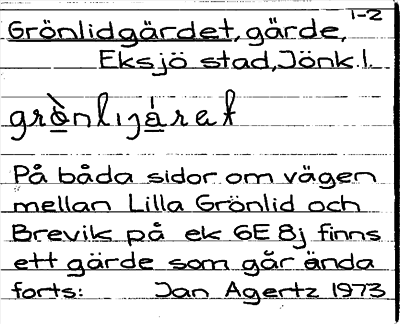 1-2
Grönlidgärdet, gärde,
Eksjö stad, Jönk.l.
På båda sidor om vägen
mellan Lilla Grönlid och
Brevik på ek 6E 8j finns
ett gärde som går ända
forts: Jan Agertz 1973